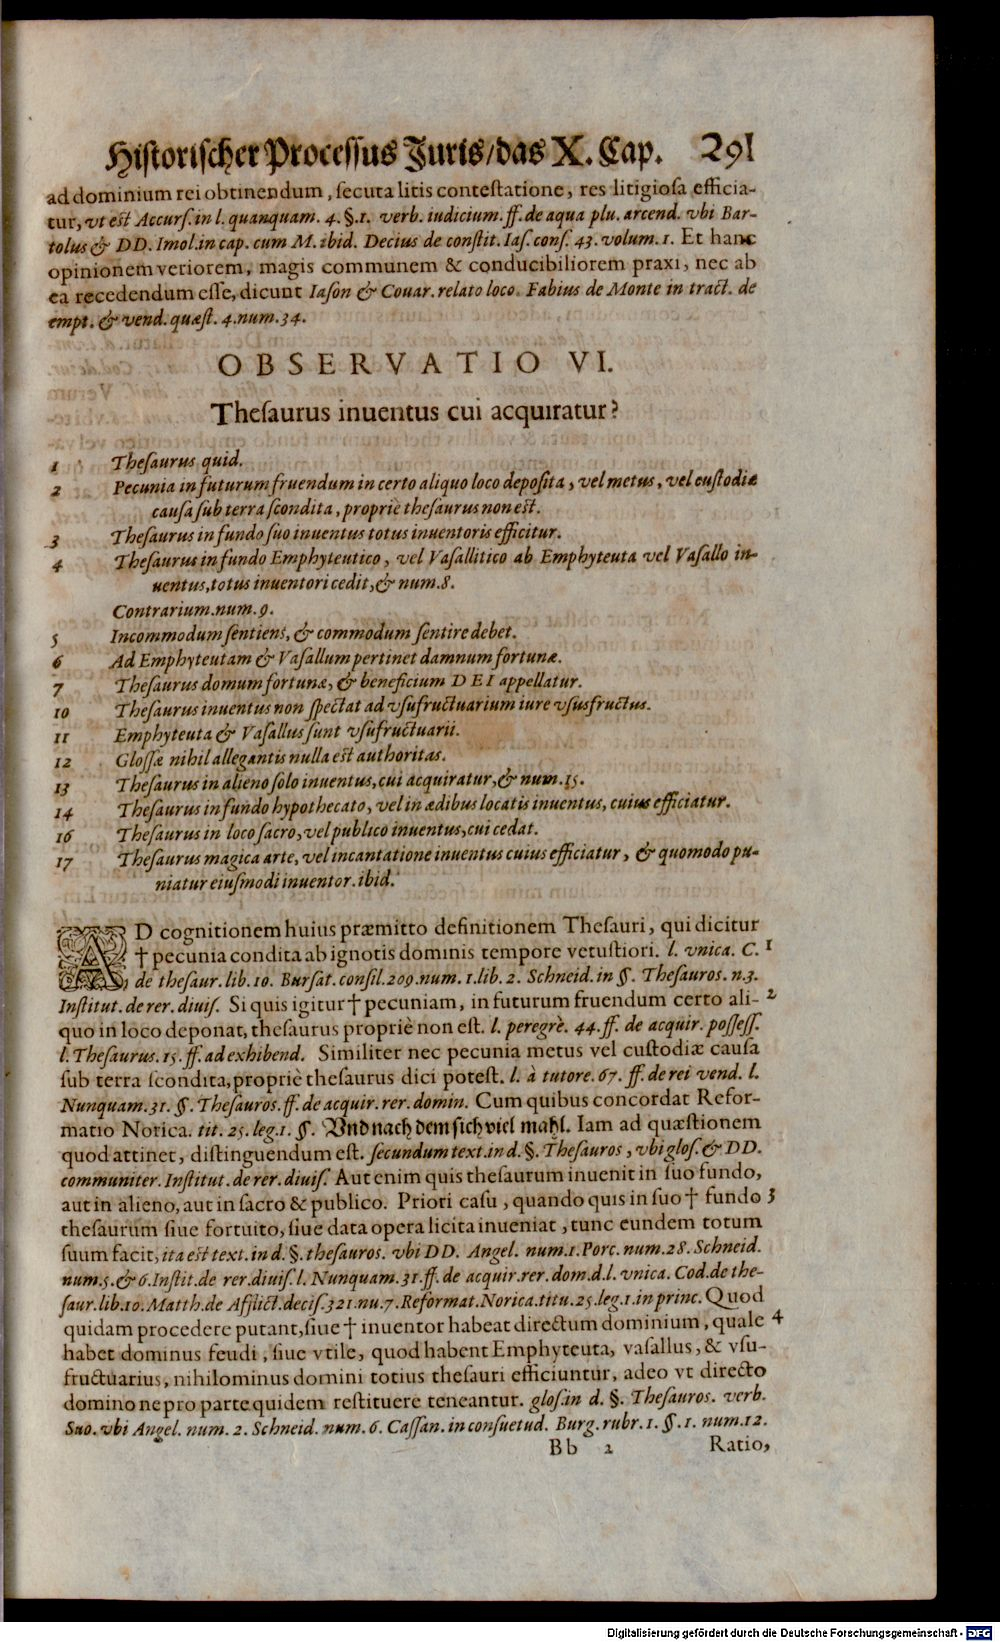 Historischer Processus Juris/das X. Cap. 291
ad dominium rei obtinendum, ſecuta litis conteſtatione, res litigioſa efficia-
tur, vt eſt Accurſ. in l. quanquam. 4. §. 1. verb. iudicium. ff. de aqua plu. arcend. vbi Bar-
tolus & DD. Imol. in cap. cum M. ibid. Decius de conſtit. Iaſ. conſ. 43. volum. 1. Et hanc
opinionem veriorem, magis communem & conducibiliorem praxi, nec ab
ea recedendum eſſe, dicunt Iaſon & Couar. relato loco. Fabius de Monte in tract. de
empt. & vend. quæſt. 4. num. 34.
OBSERVATIO VI.
Theſaurus inuentus cui acquiratur?
1 Theſaurus quid.
2 Pecunia in futurum fruendum in certo aliquo loco depoſita, vel metus, vel cuſtodiæ
cauſa ſub terra ſcondita, propriè theſaurus non eſt.
3 Theſaurus in fundo ſuo inuentus totus inuentoris efficitur.
4 Theſaurus in fundo Emphyteutico, vel Vaſallitico ab Emphyteuta vel Vaſallo in-
uentus, totus inuentori cedit, & num. 8.
Contrarium. num. 9.
5 Incommodum ſentiens, & commodum ſentire debet.
6 Ad Emphyteutam & Vaſallum pertinet damnum fortunæ.
7 Theſaurus domum fortunæ, & beneficium DEI appellatur.
10 Theſaurus inuentus non ſpectat ad vſufructuarium iure vſusfructus.
11 Emphyteuta & Vaſallus ſunt vſufructuarii.
12 Gloſſæ nihil allegantis nulla eſt authoritas.
13 Theſaurus in alieno ſolo inuentus, cui acquiratur, & num. 15.
14 Theſaurus in fundo hypothecato, vel in ædibus locatis inuentus, cuius efficiatur.
16 Theſaurus in loco ſacro, vel publico inuentus, cui cedat.
17 Theſaurus magica arte, vel incantatione inuentus cuius efficiatur, & quomodo pu-
niatur eiuſmodi inuentor. ibid.
AD cognitionem huius præmitto definitionem Theſauri, qui dicitur
† pecunia condita ab ignotis dominis tempore vetuſtiori. l. vnica. C. 1
de theſaur. lib. 10. Burſat. conſil. 209. num. 1. lib. 2. Schneid. in §. Theſauros. n. 3.
Inſtitut. de rer. diuiſ. Si quis igitur † pecuniam, in futurum fruendum certo ali- 2
quo in loco deponat, theſaurus propriè non eſt. l. peregrè. 44. ff. de acquir. poſſeſſ.
l. Theſaurus. 15. ff. ad exhibend. Similiter nec pecunia metus vel cuſtodiæ cauſa
ſub terra ſcondita, propriè theſaurus dici poteſt. l. à tutore. 67. ff. de rei vend. l.
Nunquam. 31. §. Theſauros. ff. de acquir. rer. domin. Cum quibus concordat Refor-
matio Norica. tit. 25. leg. 1. §. Vnd nach dem ſich viel mahl. Iam ad quæſtionem
quod attinet, diſtinguendum eſt. ſecundum text. in d. §. Theſauros, vbi gloſ. & DD.
communiter. Inſtitut. de rer. diuiſ. Aut enim quis theſaurum inuenit in ſuo fundo,
aut in alieno, aut in ſacro & publico. Priori caſu, quando quis in ſuo † fundo 3
theſaurum ſiue fortuito, ſiue data opera licita inueniat, tunc eundem totum
ſuum facit, ita eſt text. in d. §. theſauros. vbi DD. Angel. num. 1. Porc. num. 28. Schneid.
num. 5. & 6. Inſtit. de rer. diuiſ. l. Nunquam. 31. ff. de acquir. rer. dom. d. l. vnica. Cod. de the-
ſaur. lib. 10. Matth. de Afflict. deciſ. 321. nu. 7. Reformat. Norica. titu. 25. leg. 1. in princ. Quod
quidam procedere putant, ſiue † inuentor habeat directum dominium, quale 4
habet dominus feudi, ſiue vtile, quod habent Emphyteuta, vaſallus, & vſu-
fructuarius, nihilominus domini totius theſauri efficiuntur, adeo vt directo
domino ne pro parte quidem reſtituere teneantur. gloſ. in d. §. Theſauros. verb.
Suo. vbi Angel. num. 2. Schneid. num. 6. Caſſan. in conſuetud. Burg. rubr. 1. §. 1. num. 12.
Bb 2 Ratio,
Digitalisierung gefördert durch die Deutsche Forschungsgemeinschaft - DFG